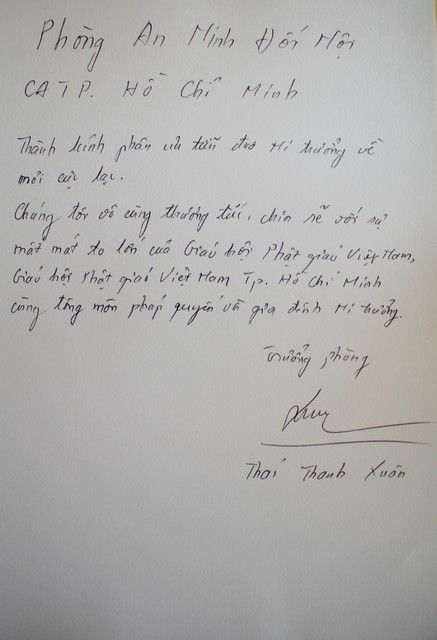 Phòng An Ninh Đối Nội
CATP. Hồ Chí Minh
Thành kính phân ưu tiễn đưa Ni trưởng về
mỏi cực lạc.
Chúng tôi vô cùng thương tiếc, chia sẽ với sự
mất mát to lớn của Giáo hội Phật giáo Việt Nam,
Giáo hội Phật giáo Việt Nam Tp. Hồ Chí Minh
cùng tông môn pháp quyến và gia đình Ni trưởng.
Trưởng phòng
Thái Thanh Xuân